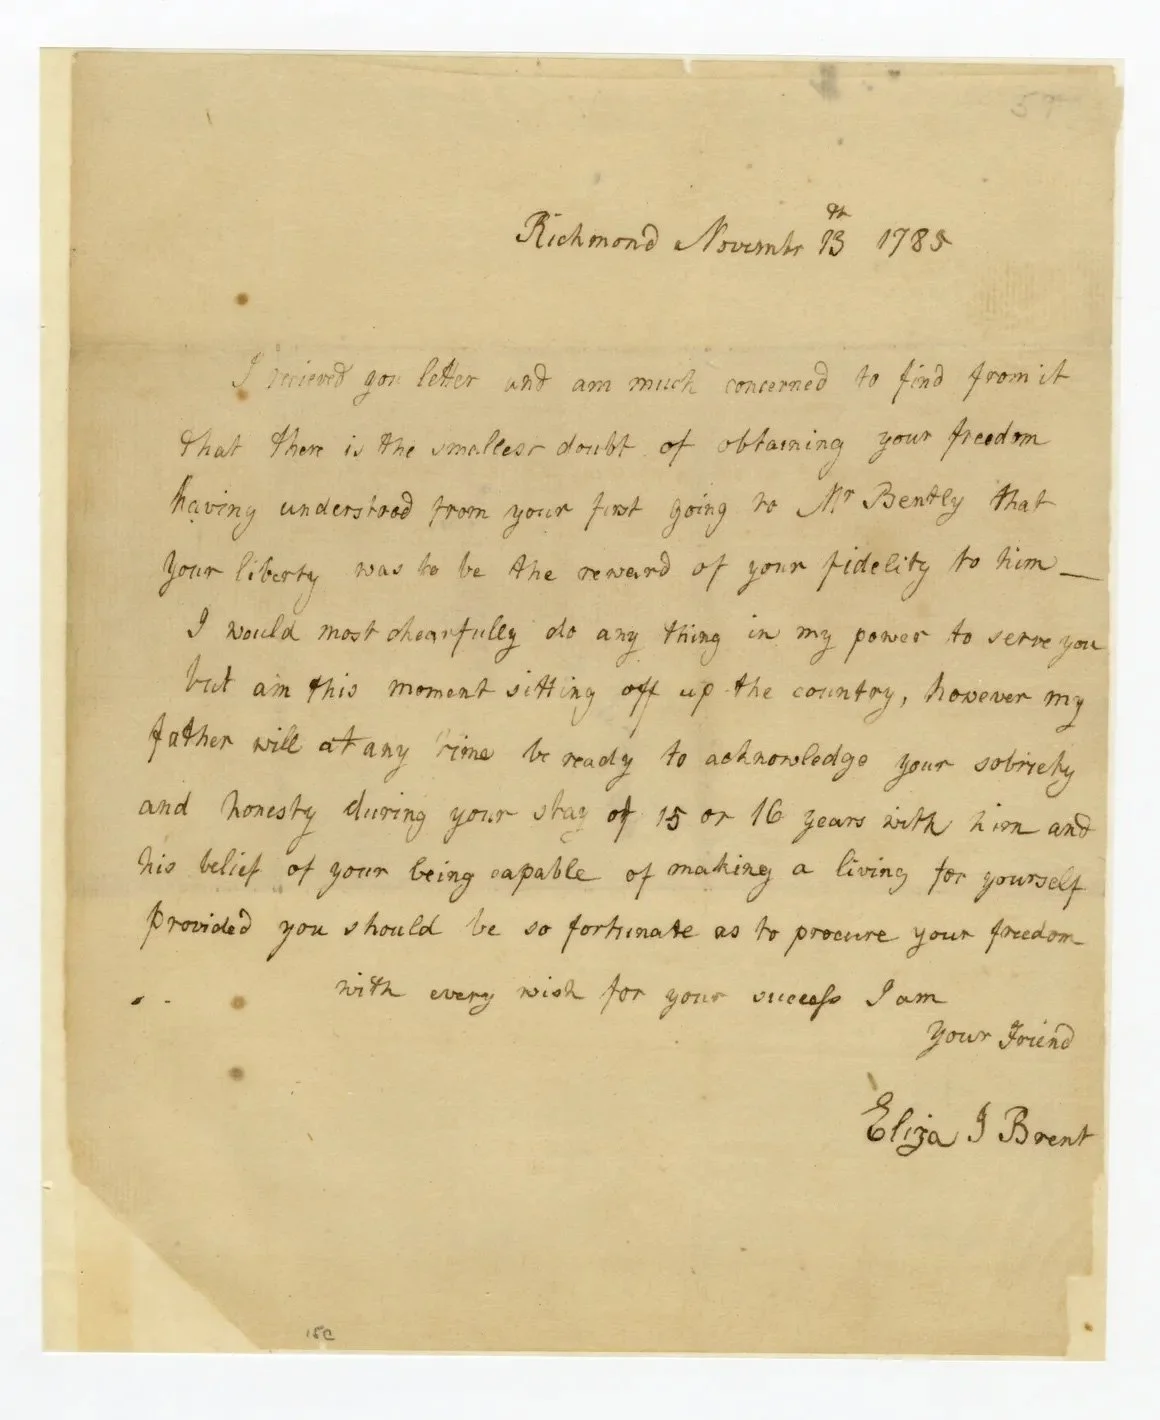 57
Richmond Novembr 13th 1785
I recieved you letter and am much concerned to find from it
that there is the smallest doubt of obtaining your freedom
having understood from your first going to Mr Bently that
your liberty was to be the reward of your fidelity to him —
I would most chearfully do any thing in my power to serve you
but am this moment sitting off up the country, however my
father will at any time be ready to acknowledge your sobriety
and honesty during your stay of 15 or 16 years with him and
his belief of your being capable of making a living for yourself
provided you should be so fortunate as to procure your freedom
with every wish for your success I am
Your Friend
Eliza J Brent
15c